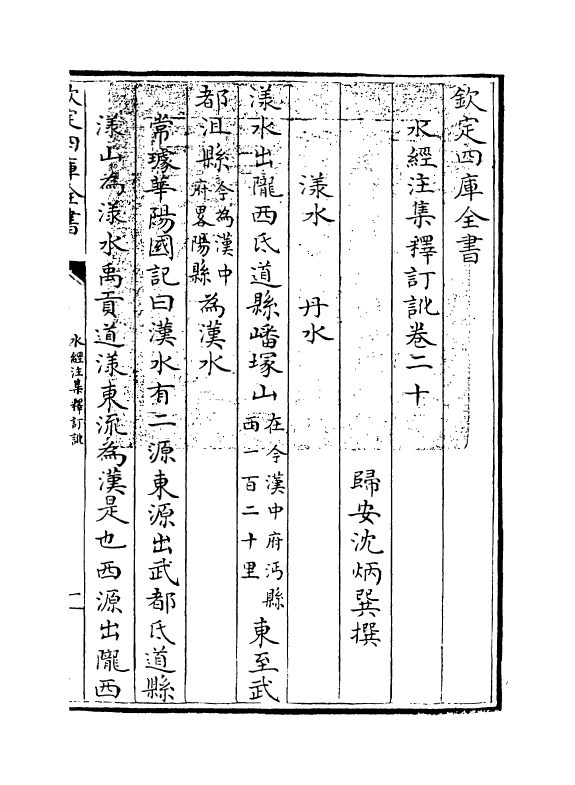 欽定四庫全書
水經注集釋訂訛卷二十
歸安沈炳巽撰
漾水　丹水
漾水出隴西氐道縣嶓塚山在今漢中府沔縣西一百二十里東至武
都沮縣今為漢中府畧陽縣為漢水
常璩華陽國記曰漢水有二源東源出武都氐道縣
漾山為漾水禹貢道漾東流為漢是也西源出隴西
欽定四庫全書
水經注集釋訂訛
一